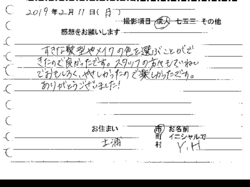 2019年2月11日(月)
撮影項目 成人 七五三 その他
感想をお願いします
すきな髪型やメイクの色を選ぶことがで
きたので良かったです。スタッフの方々もていねい
でおもしろく、やさしかったので楽しかったです。
ありがとうございました!
お住まい 土浦 市 町 村
お名前 イニシャルで Y.H